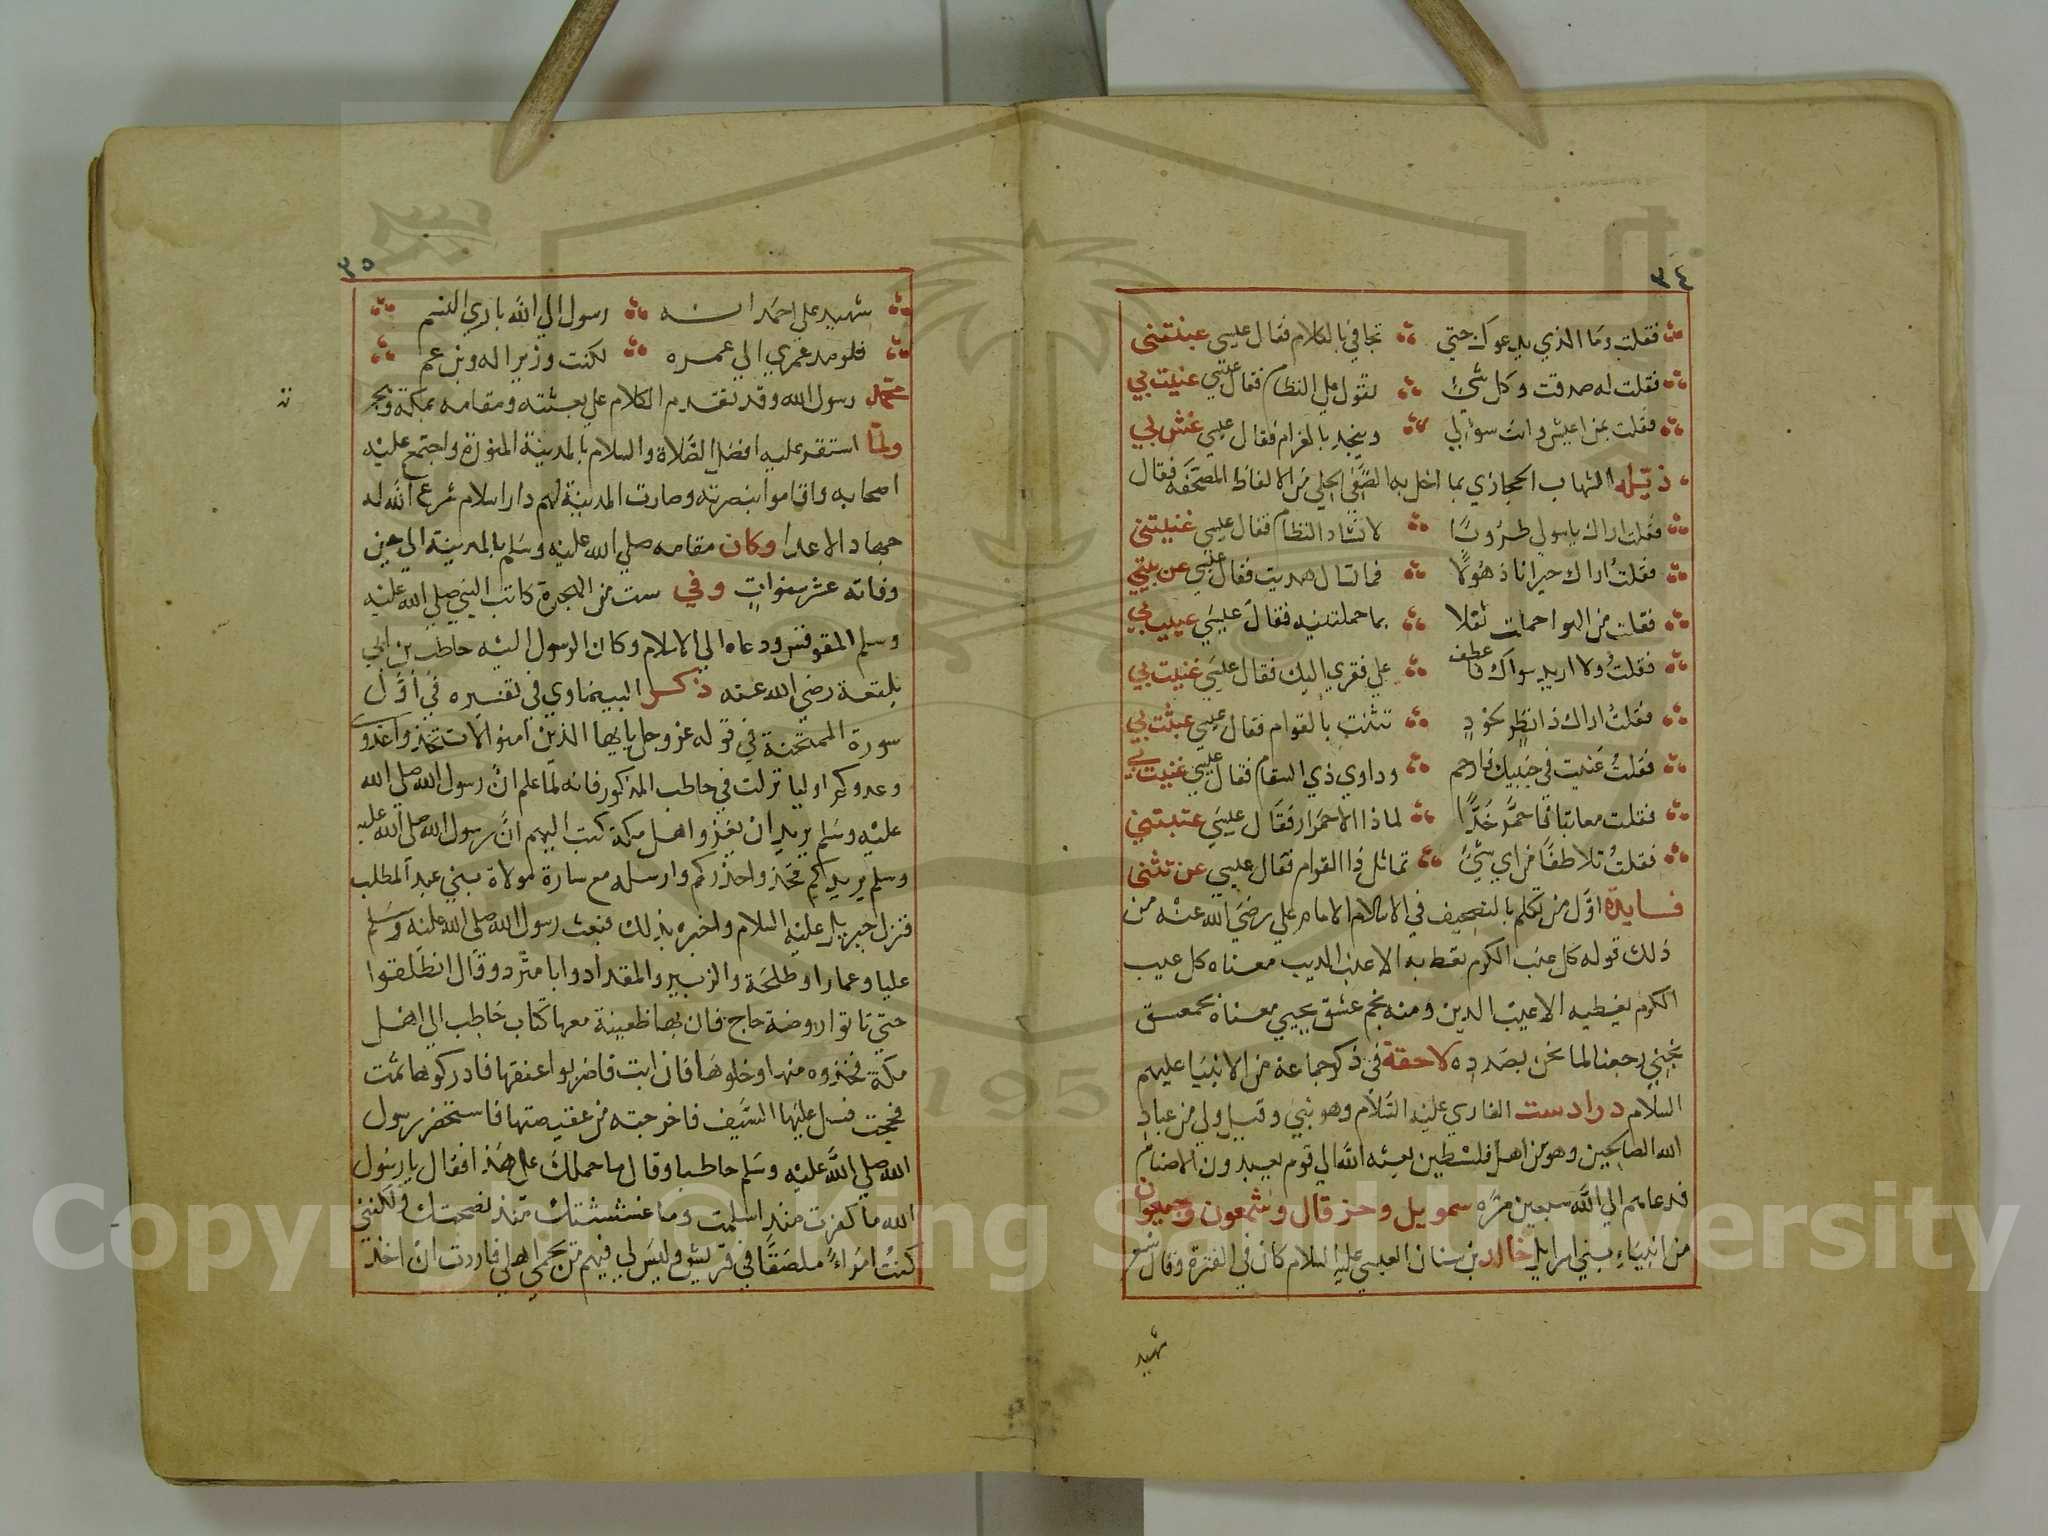 ٣٤
فقلت وما الذي يدعوك حتي تجافي بالكلام فقال عيسي عبنتغنى
فقلت له صدقت وكل شئ تقول علي النظام فقال عيسي عنيت بي
فقلت بمن اعيش وانت سؤلي وينجد بالمغرام فقال عيسي عش بي
ذيله الشهاب الحجازي بما اخل به الصفي الحلي من الالفاظ المصحفه فقال
فقلت اراك ياسولي طروبا لانشاد النظام فقال عيسي غنيتني
فقلت اراك حيرانا ذهولا فماتسال حديث فقال عيسي عن بيتي
فقلت من الهوا حملت ثقلا بما حملتنيه فقال عيسي عييت بي
فقلت ولا اريد سواك فاعطف علي فقري اليك فقال عيسي غنيت بي
فقلت اراك ذا نظر بخود تثنت بالقوام فقال عيسي عبثت بي
فقلت عنيت في حبيك فارحم وداوي ذي السقام فقال عيسي عنيت بي
فقلت معاتبا فاحمر خدا لماذا الاحمرار فقال عيسي عتبتني
فقلت تلاطفا من اي شئ تمائل ذا القوام فقال عيسي عن تثنى
فايدة اول من تكلم بالتصحيف في الاسلام الامام علي رضي الله عنه من
ذلك قوله كل عنب الكرم يعطيه الا عنب الديب معناه كل عيب
الكرم يغطيه الا عيب الدين ومنه نجم عشق يحيي معناه بحمعسق
نجني رجعنا لما نحن بصدده لاحقة في ذكر جماعة من الانبيا عليهم
السلام درادست الفارسي عليه السلام وهو نبي وقيل ولي من عباد
الله الصالحين وهو من اهل فلسطين بعثه الله الي قوم يعبدون الاصنام
فدعاهم الي الله سبعين مرة سمويل وحزقال وشمعون
من انبياء بني اسرايل خالد بن سنان العبسي عليه السلام كان في الفترة وقال
شهيد
٣٥
شهيد علي احمد انه رسول الي الله باري النسم
فلو مد عمري الي عمره لكنت وزيرا له وبن عم
محمد رسول الله وقد تقدم الكلام علي بعثته ومقامه بمكة
ولما استقر عليه افضل الصلاة والسلام بالمدينة المنورة واجتمع عليه
اصحابه واقاموا بنصرته وصارت المدينة لهم دار اسلام شرع الله له
جهاد الاعدا وكان مقامه صلي الله عليه وسلم بالمدينة الي حين
وفاته عشر سنوات وفي ست من الهجرة كاتب النبي صلي الله عليه
وسلم المقوقس ودعاه الي الاسلام وكان الرسول اليه حاطب بن ابي
بلتعة رضي الله عنه ذكر البيضاوي في تفسيره في اول
سورة الممتحنة في قوله عز وجل يايها الذين امنوا لا تتخذوا عدوي
وعدوكم اوليا نزلت في حاطب المذكور فانه لما علم ان رسول الله صلي الله
عليه وسلم يريد ان يغزو اهل مكة كتب اليهم ان رسول الله صلي الله عليه
وسلم يريدكم فخذوا حذركم وارسله مع سارة مولاة بني عبد المطلب
فنزل جبريل عليه السلام واخبره بذلك فبعث رسول الله صلي الله عليه وسلم
عليا وعمارا وطلحة والزبير والمقداد وابا مرثد وقال انطلقوا
حتي تاتوا روضة حاج فان بها ظعينة معها كتاب حاطب الي اهل
مكة فخذوه منها وخلوها فان ابت فاضربوا عنقها فادركوها ثمت
فجحت فسل عليها السيف فاخرجته من عقيصتها فاستحضر رسول
الله صلي الله عليه وسلم حاطبا وقال ما حملك علي هذا فقال يارسول
الله ما كفرت منذ اسلمت وما غششتك منذ نصحتك ولكنني
كنت امراء ملصقا في قريش وليس لي فيهم من يحمي اهلي فاردت ان اخذ